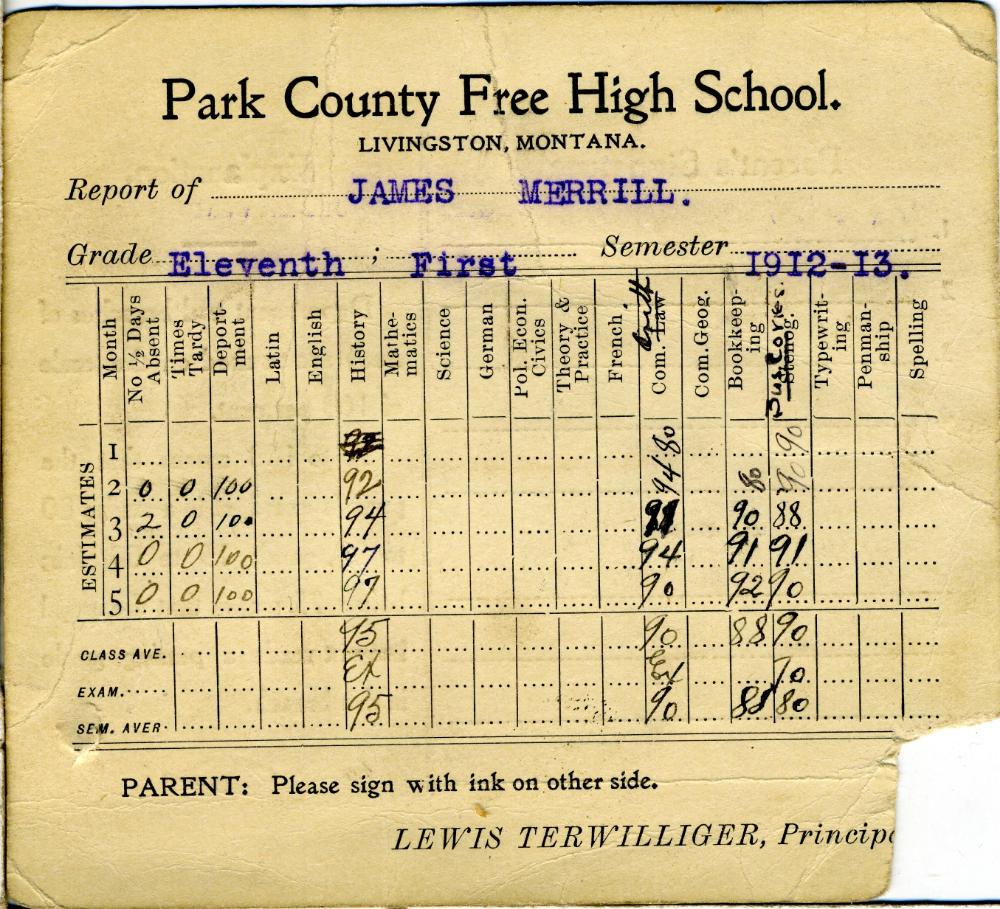 Park County Free High School.
LIVINGSTON, MONTANA.
Report of JAMES MERRILL.
Grade Eleventh ; First Semester 1912-13.
Month No ½ Days Absent Times Tardy Deport-ment Latin English History Mathe-matics Science German Pol. Econ. Civics Theory & Practice French Com. Law Com. Geog. Bookkeep-ing Stenog. Typewrit-ing Penman-ship Spelling
ESTIMATES
1 80 90
2 0 0 100 92 94 80 90
3 2 0 100 94 90 88
4 0 0 100 97 94 91 91
5 0 0 100 97 90 92 90
CLASS AVE. 95 90 88 90
EXAM. Ex Ex 70
SEM. AVER 95 90 88 80
PARENT: Please sign with ink on other side.
LEWIS TERWILLIGER, Principa